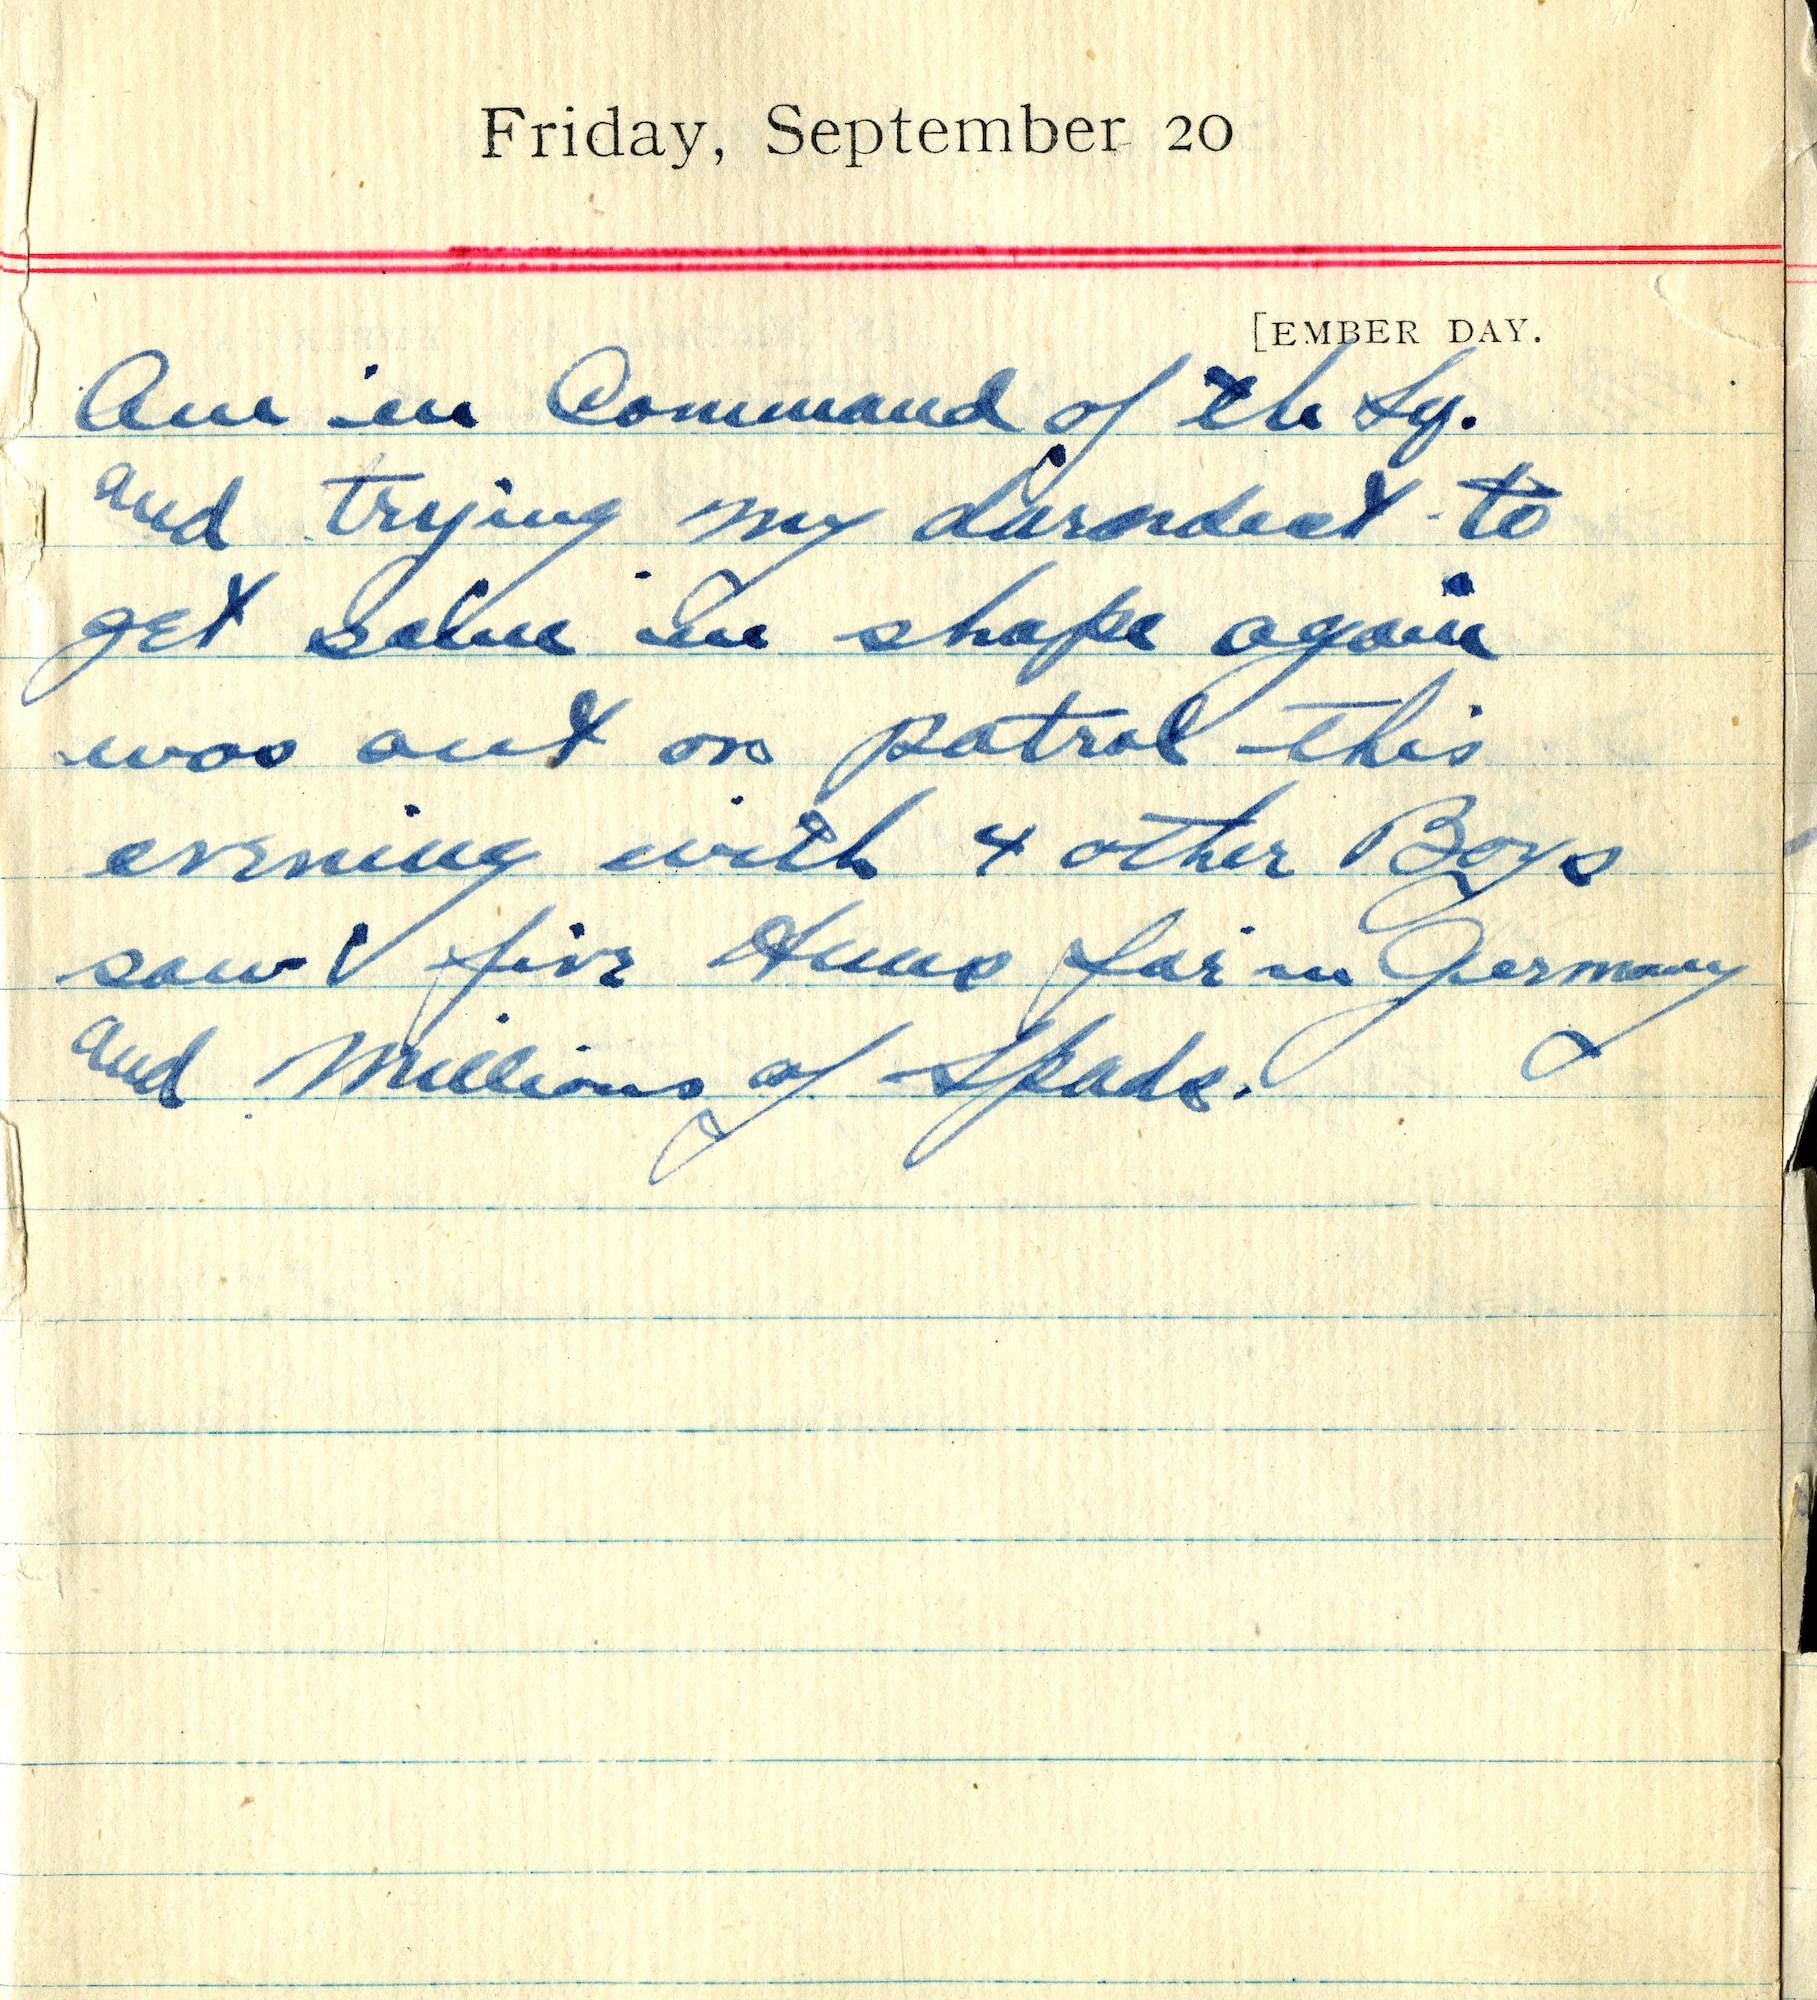 Friday, September 20
[EMBER DAY.
Am in Command of the Sq.
and trying my darndest to
get same in shape again
was out on patrol this
evening with 4 other Boys
saw five Huns far in Germany
and Millions of Spads.